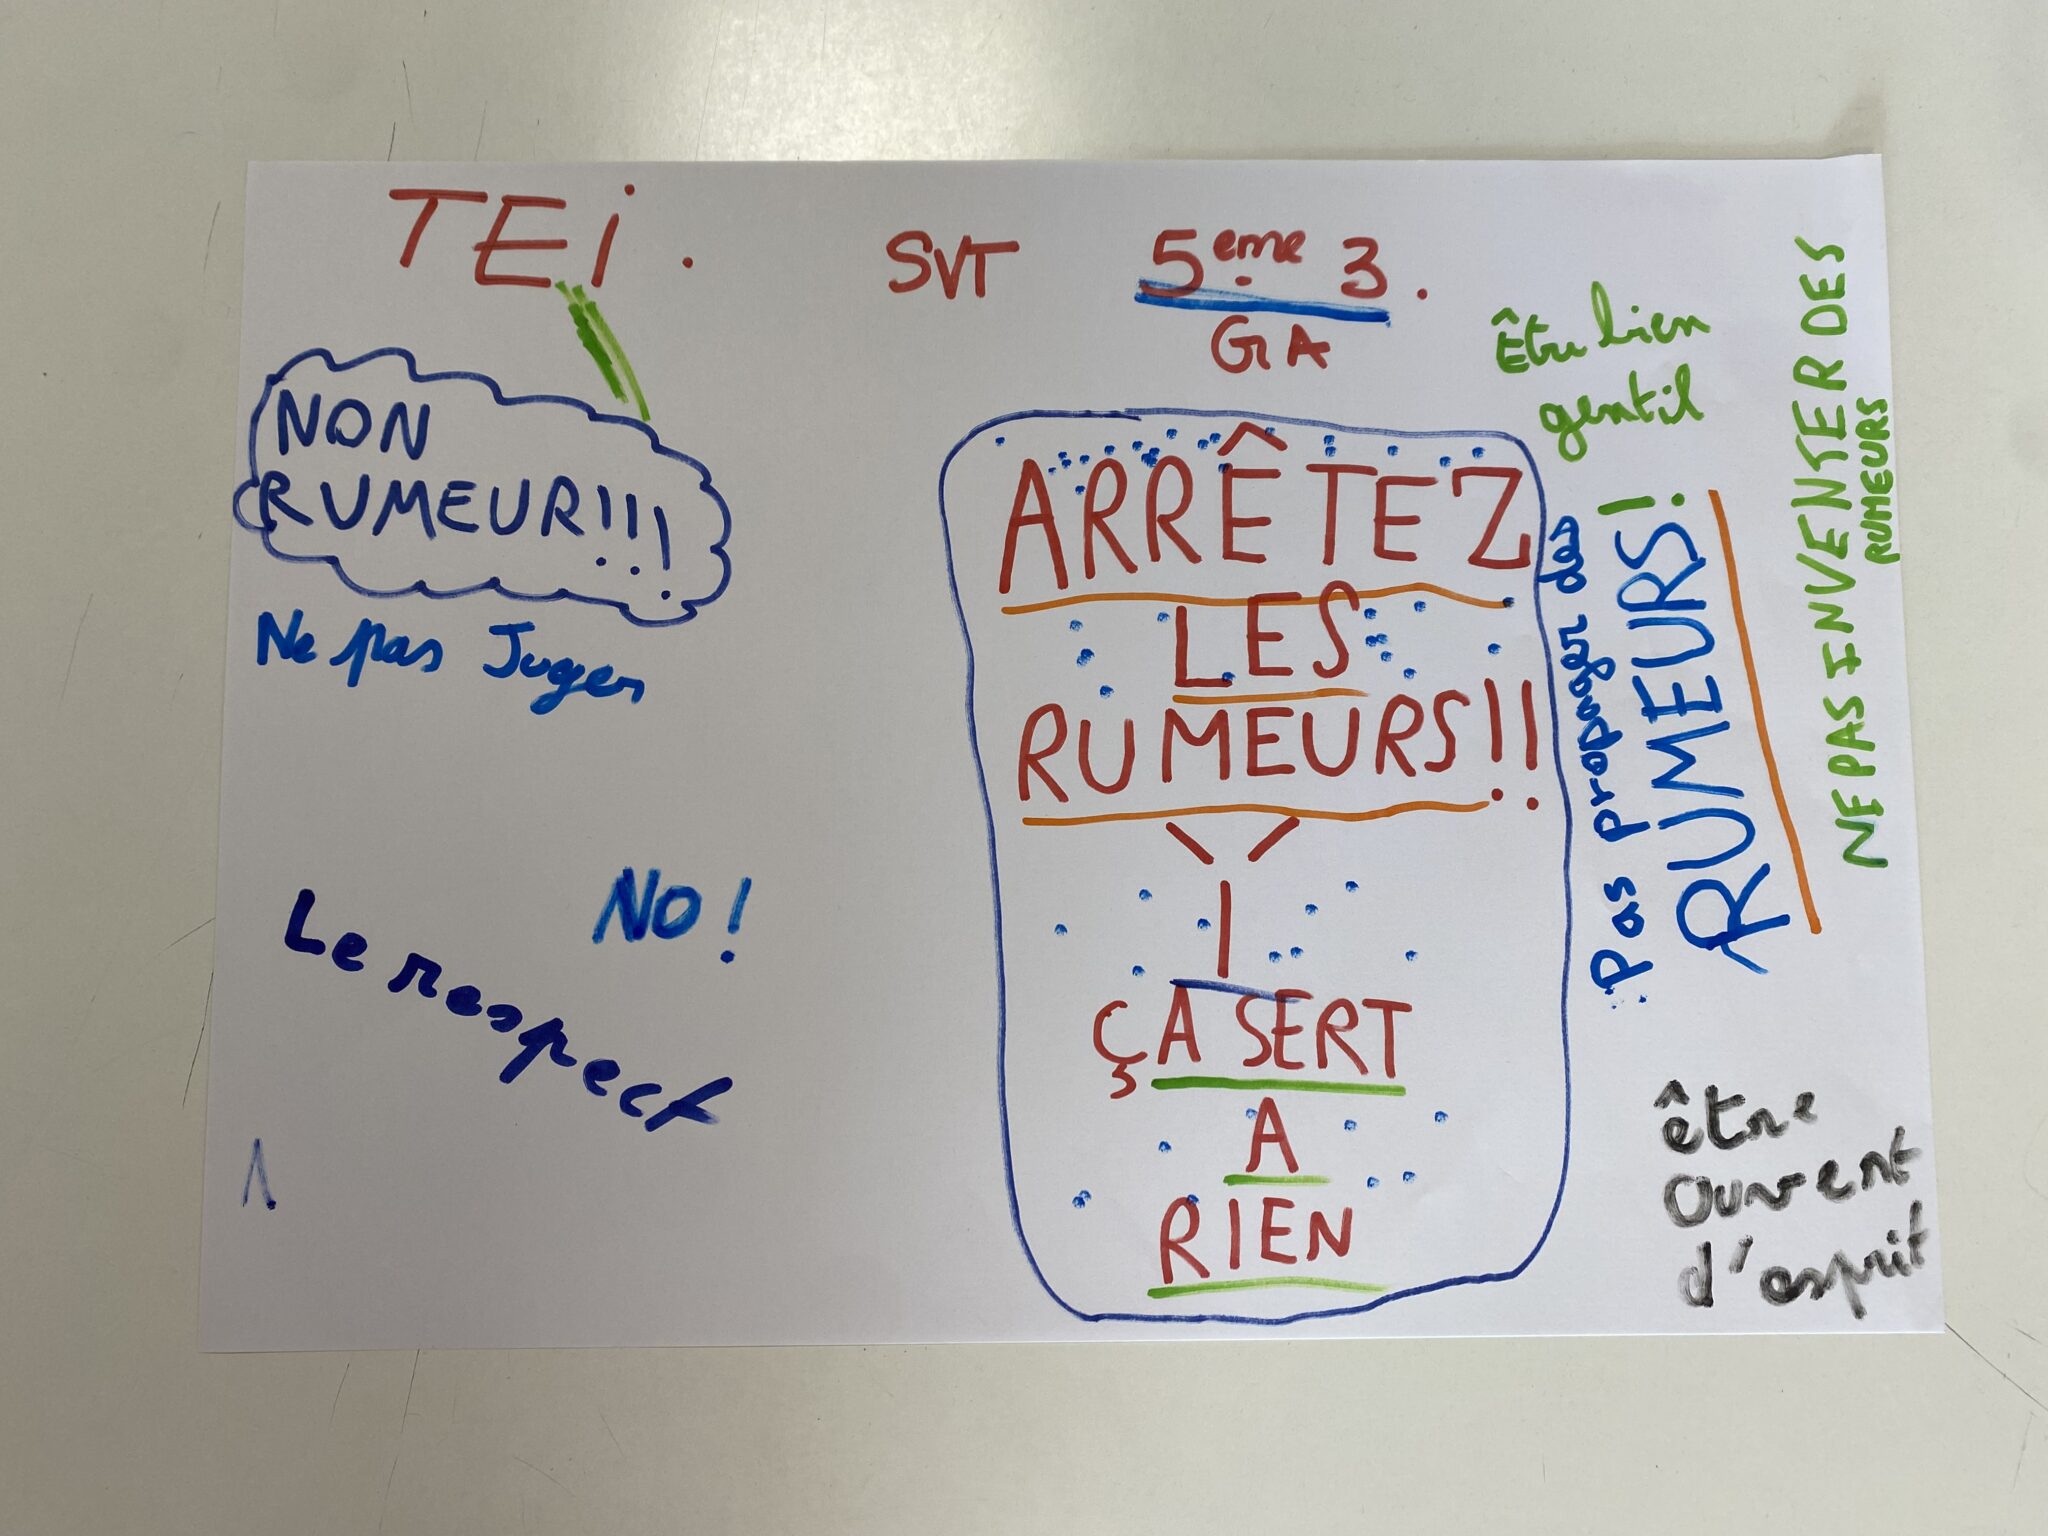 TEi.
SVT
5eme 3.
GA
NON
RUMEUR!!!
Ne pas Juger
NO!
Le respect
ARRÊTEZ
LES
RUMEURS!!
ÇA SERT
A
RIEN
Être bien
gentil
Pas propager des
RUMEURS!!
NE PAS INVENTER DES
RUMEURS
être
Ouvert
d'esprit